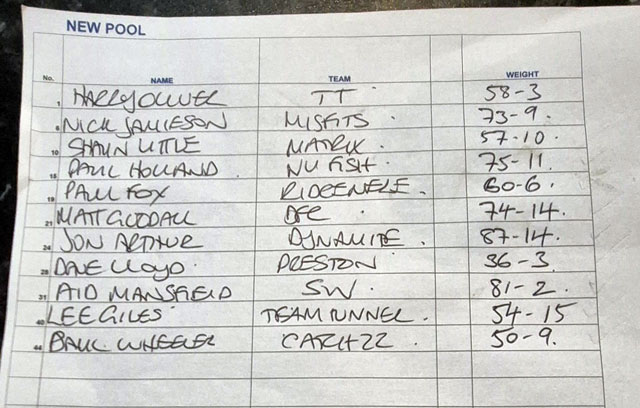 NEW POOL
No. NAME TEAM WEIGHT
1 HARRY OLIVER TT 58-3
6 NICK JAMIESON MISFITS 73-9.
10 SHAUN LITTLE MATRIX 57-10
15 PAUL HOLLAND NU FISH 75-11
19 PAUL FOX 60-6.
21 MATT GODDALL DFC 74-14.
24 JON ARTHUR DYNAMITE 87-14.
28 DAVE LLOYD PRESTON 36-3
31 AID MANSFIELD SW 81-2
40 LEE GILES TEAM TUNNEL 54-15
44 WHEELER CATCH 22 50-9.